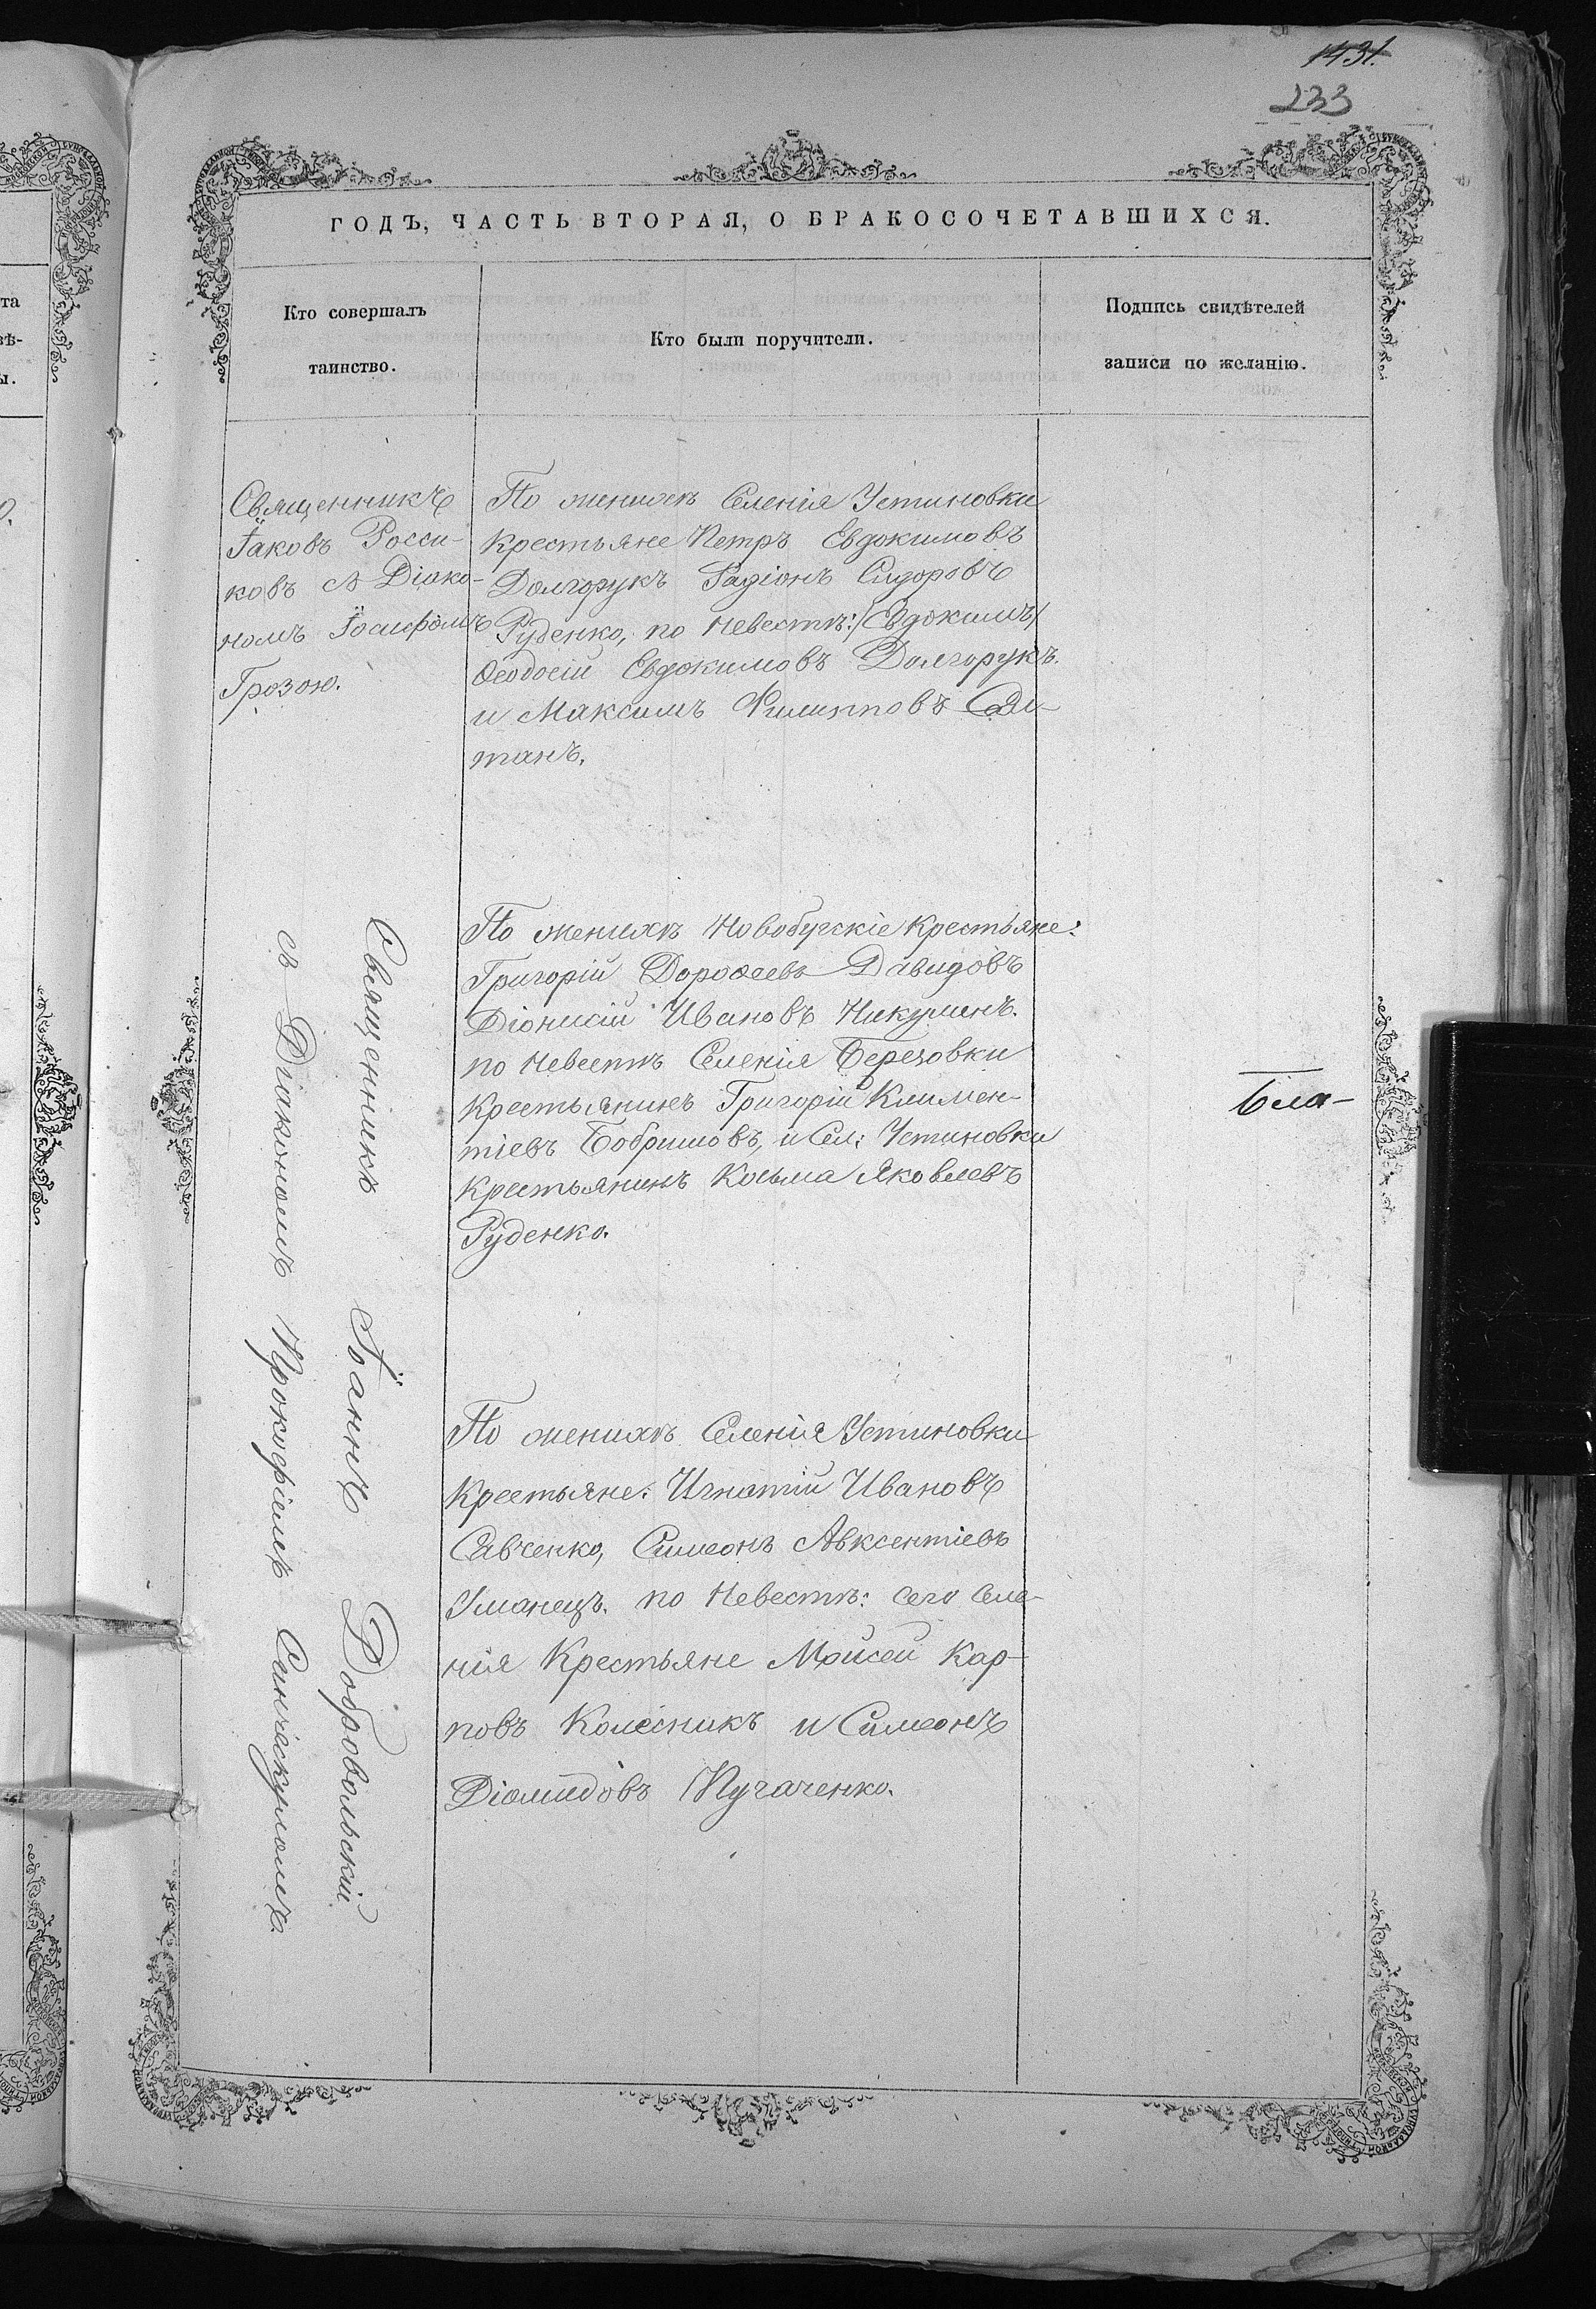 1431.
233
ГОДЪ, ЧАСТЬ ВТОРАЯ, О БРАКОСОЧЕТАВШИХСЯ.
Кто совершалъ
таинство.
Кто были поручители.
Подпись свидѣтелей
записи по желанію.
Священникъ
Іаковъ Росси-
ковъ съ Діако-
номъ Іосифомъ
Грозою.
По женихѣ Селенія Устиновки
Крестьяне Петръ Евдокимовъ
Долгорукъ Радіонъ Сидоровъ
Руденко, по Невестѣ: /Евдокимъ/
Ѳеодосій Евдокимовъ Долгорукъ.
и Максимъ Филипповъ
танъ.
Священникъ Іоаннъ Добровольскій
съ Діакономъ Прокофіемъ
По женихѣ Новобугскіе Крестьяне:
Григорій Дороѳеевъ Давидовъ
Діонисій Ивановъ Никулинъ.
по Невестѣ Селенія Березовки
Крестьянинъ Григорій Климен-
тіевъ Бобришовъ, и Сел: Устиновки
Крестьянинъ Косьма Яковлевъ
Руденко.
Бла-
По женихѣ Селенія Устиновки
Крестьяне: Игнатій Ивановъ
Савченко, Симеонъ Авксентіевъ
Уманецъ. по Невестѣ: сего Селе-
нія Крестьяне Мойсей Кар-
повъ Колесникъ и Симеонъ
Діомидовъ Пугаченко.